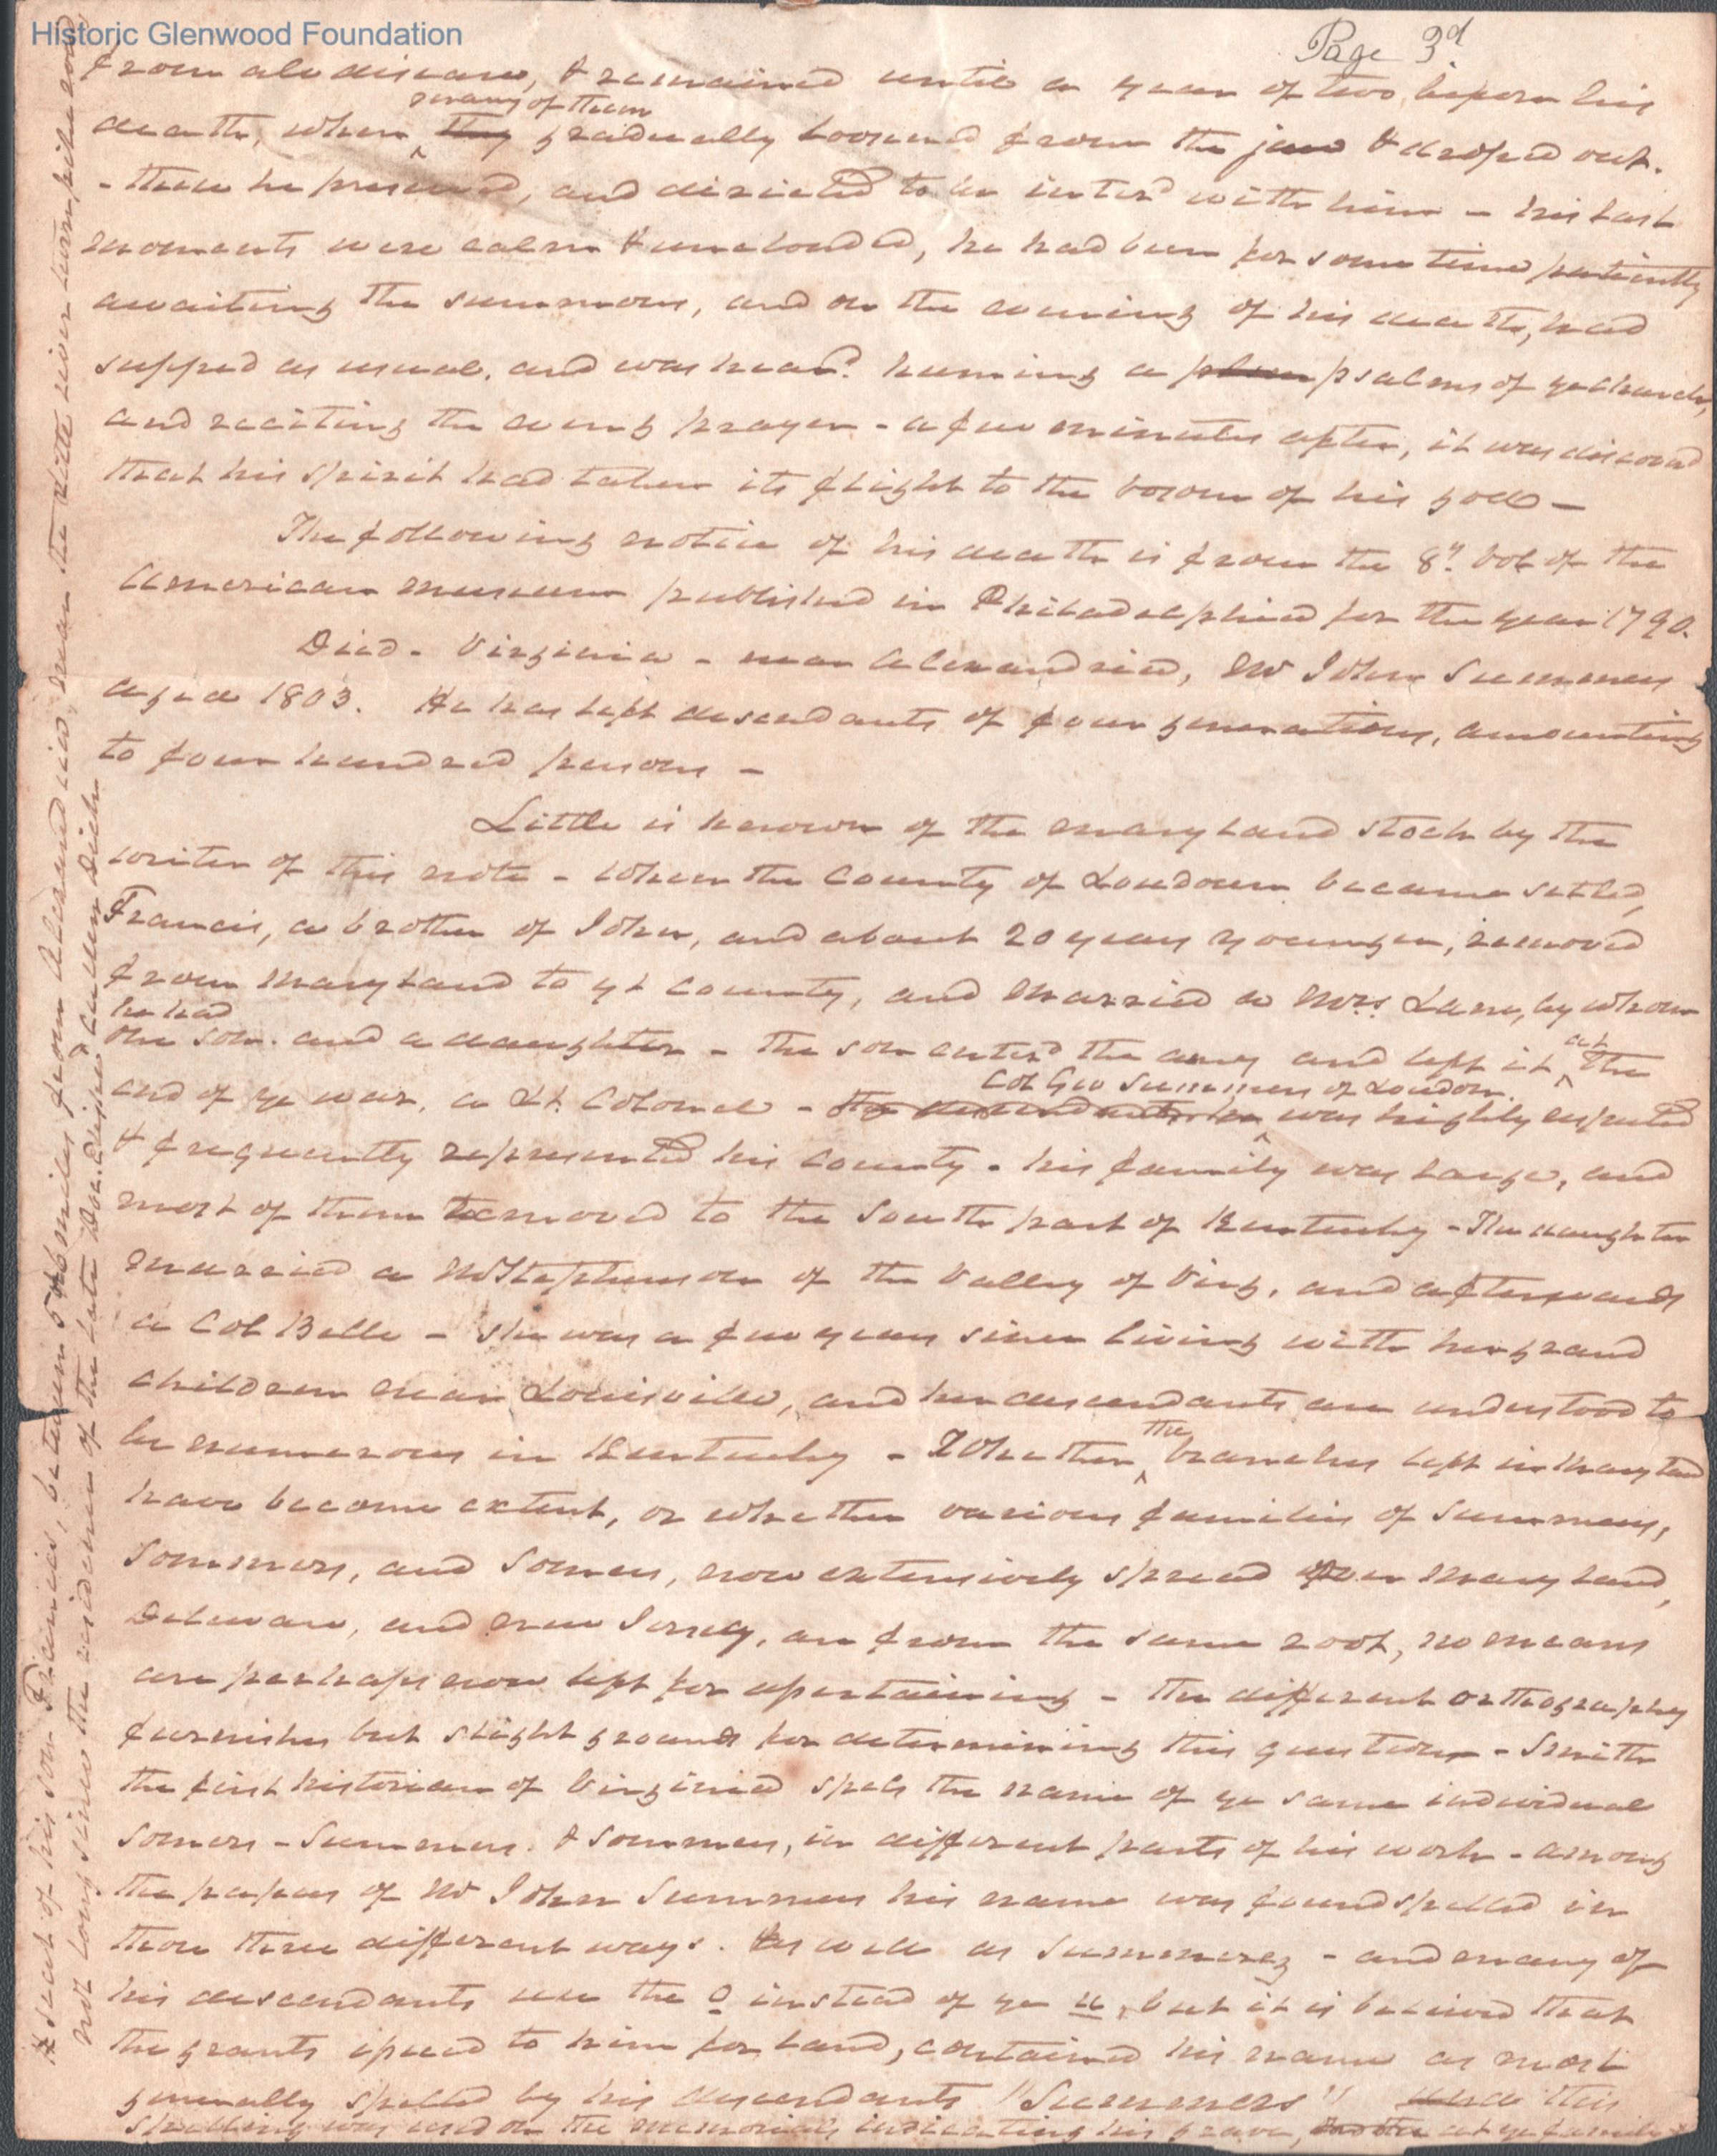 Historic Glenwood Foundation
Page 3d.
from all disease, & remained until a year of two before his
many of them
death, when they gradually loosened from the jaw & droped out.
- these he preserved, and diricted to be inter'd with him - his last
moments were calm & unclouded, he had been for some time patiently
awaiting the summons, and on the evening of his death, had
supped as usual, and was heard huming a psalms of ye church,
and reciting the eveng prayer - a few minutes after, it was discovd
that his spirit had taken its flight to the bosom of his god -
The following notice of his death is from the 8th. vol of the
American museum published in Philadelphia for the year 1790.
Died - Virginia - near Alexandria, Mr John Summers
aged 103. He has left descendants of four generations, amounting
to four hundred persons -
Little is known of the maryland stock by the
writer of this note - When the County of Loudoun became setled,
Francis, a brother of John, and about 20 years younger, removed
from maryland to yt County, and married a Mrs. Lane, by whom
he had
one son. and a daughter - the son enterd the army and left it at the
Col Geo Summers of Loudon.
end of ye war, a Lt. Colonel - the descendants was highly respected
& frequently represented his County - his family was large, and
most of them removed to the South part of Kentucky - The daughter
married a Mr Stephenson of the Valley of Virg, and afterwards
a Col Bell - she was a few years since living with her grand
children near Louisville, and her descendants are understood to
be numerous in Kentucky - Whether the branches left in Maryland
have become extent, or whether various families of Summers,
Sommers, and Somers, now extensively spread over Maryland,
Delaware, and new Jersey, are from the same root, no means
are perhaps now left for assertaining - the different orthography
furnishes but slight grounds for determining this question - Smith
the first historian of Virginia spels the name of ye same individual
Somers - Summers. & Sommers, in different parts of his work - among
the papers of Mr John Summers his name was found spelled in
those three different ways. As well as Summerez - and many of
his descendants use the o instead of ye u, but it is believed that
the grants issued to him for land, contained his name as most
generally spelled by his descendants "Summers" and this
spelling was used on the memorial indicating his grave, at ye family
# Seat of his son Francis, between 5 & 6 miles from Alexandria, near the little river turnpike road
not long since the residence of the late Doc. Elisha Cullen Dick